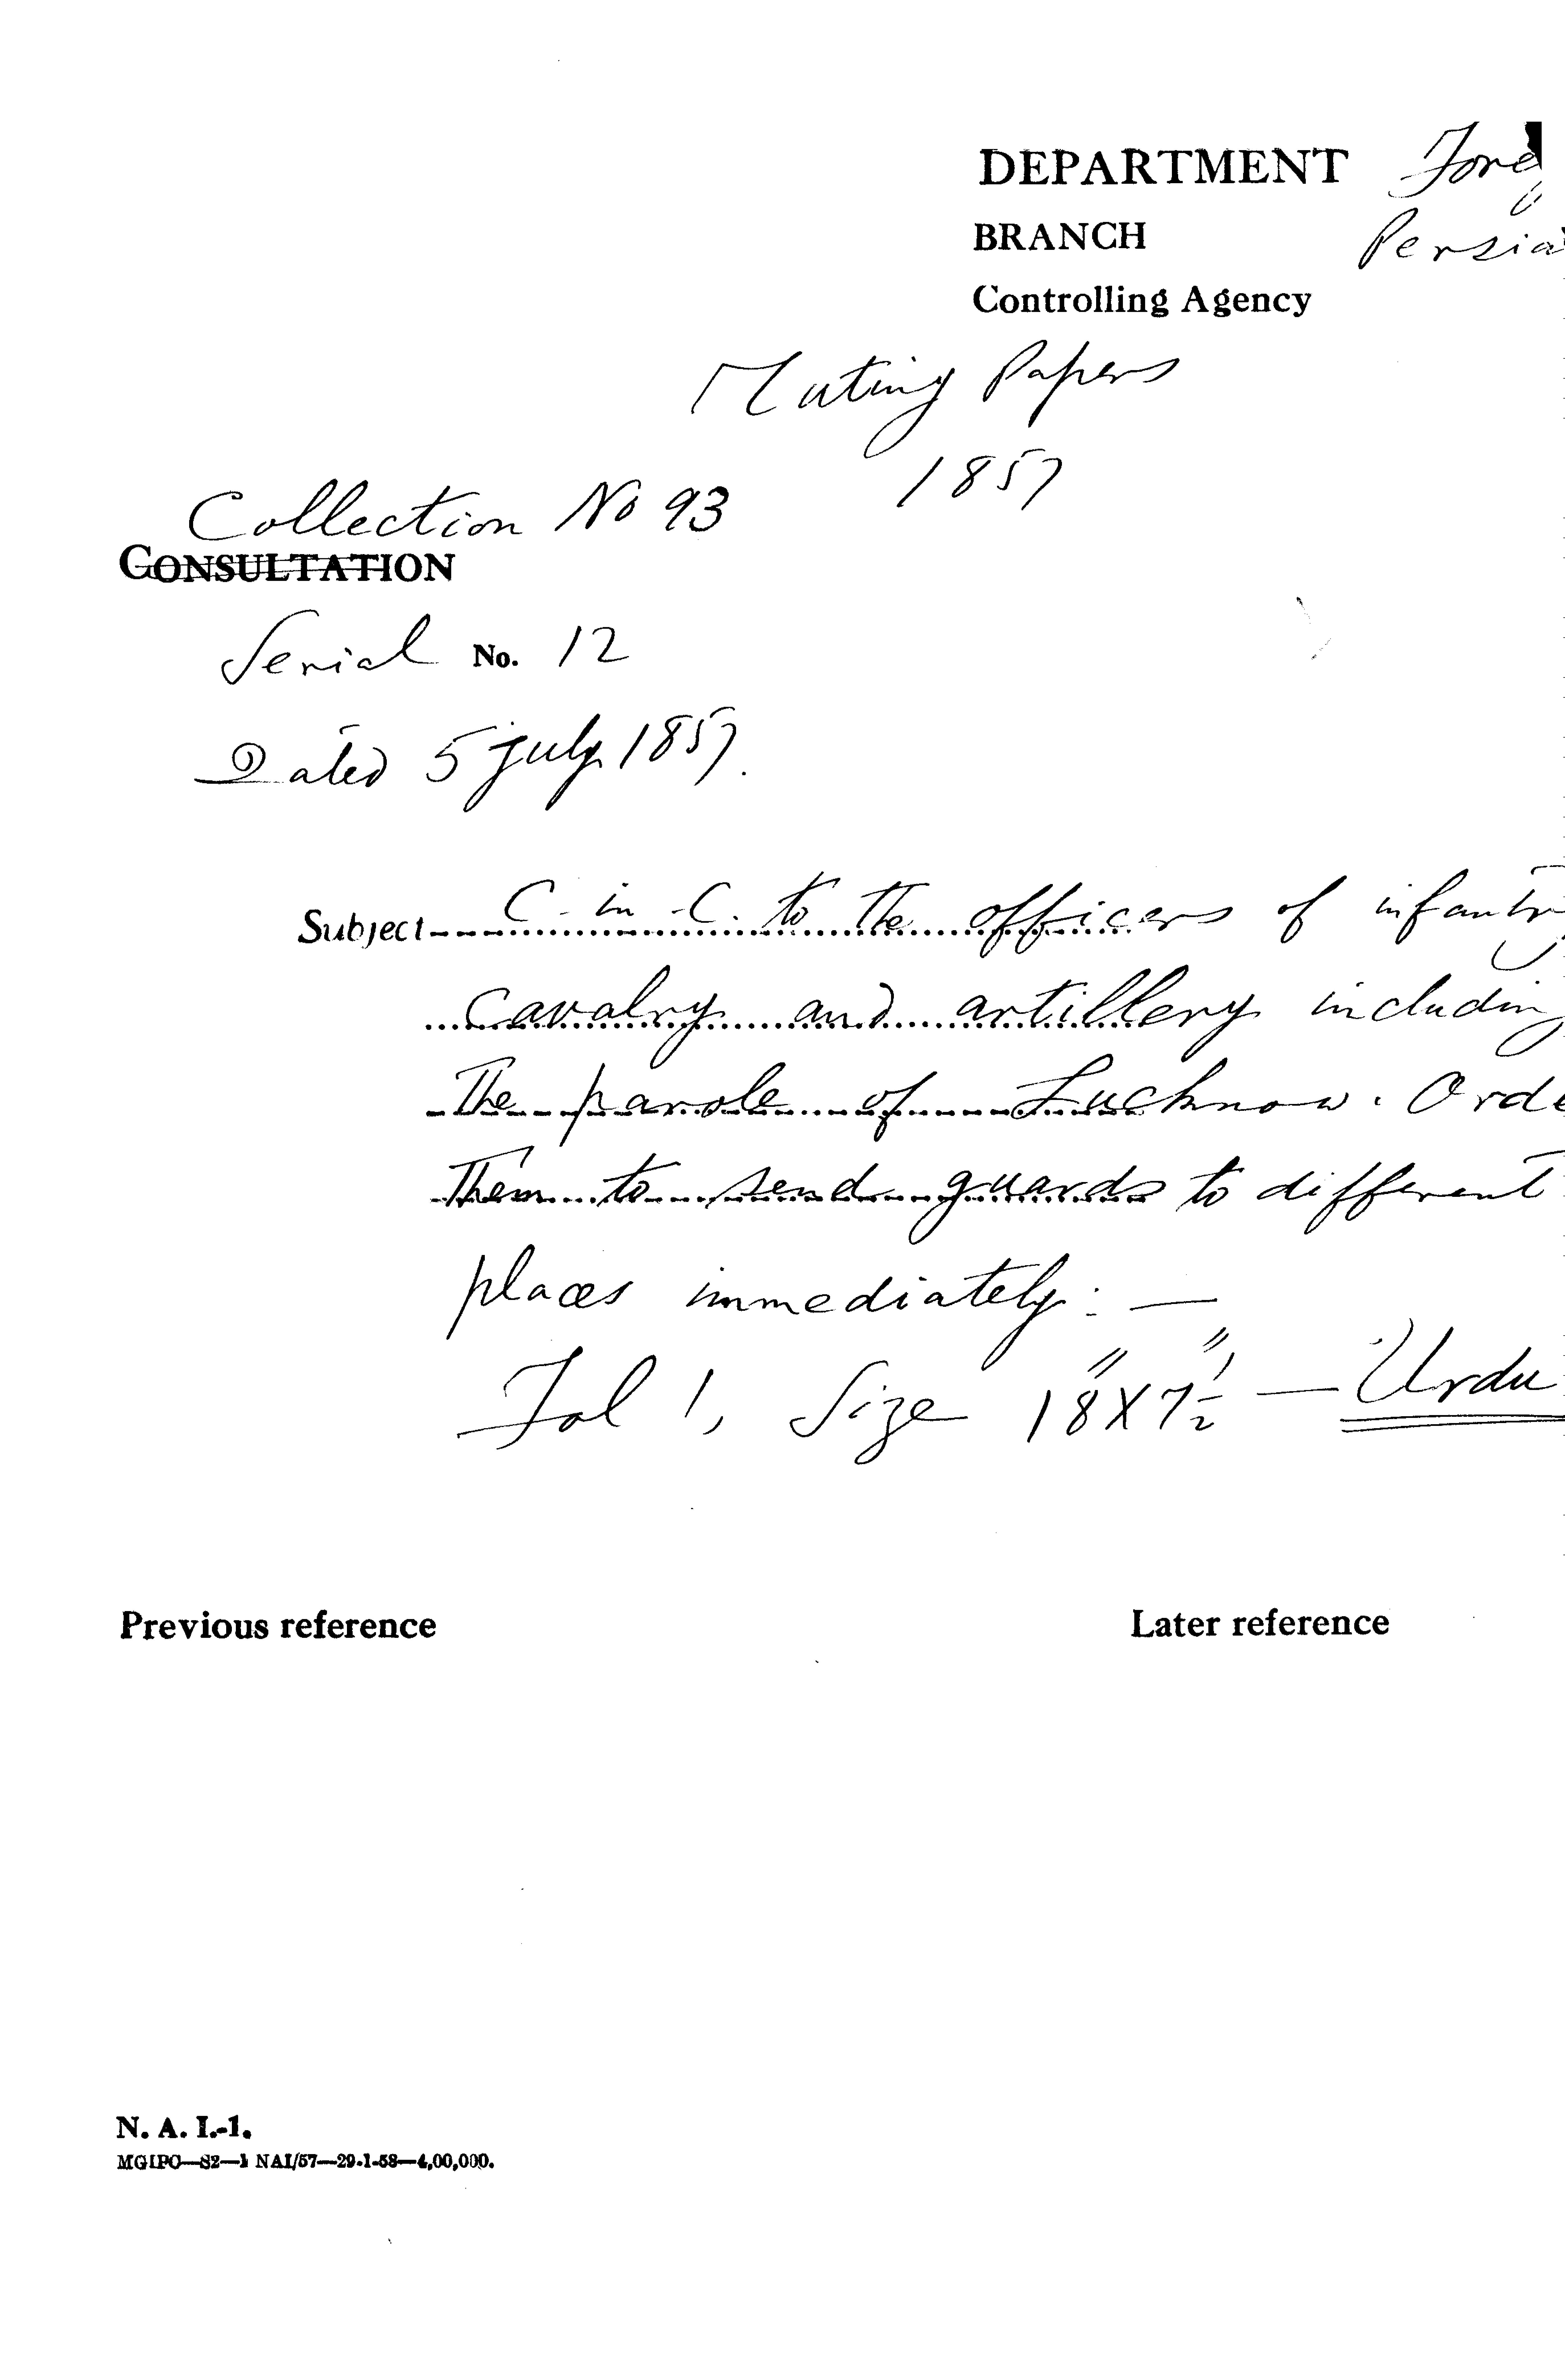 DEPARTMENT Foreig
BRANCH Persia
Controlling Agency
Mutiny Papers
1857
Collection No 93
CONSULTATION
Serial No. 12
Dated 5 July 1857.
Subject C-in-C. to the officers of infantry
cavalry and artillery including
the parole of Lucknow. Orde
them to send guards to different
places immediately: —
Fol 1, Size 18" X 7½" — Urdu
Previous reference Later reference
N. A. I.-1.
MGIPC—S2—1 NAI/57—29-1-58—4,00,000.